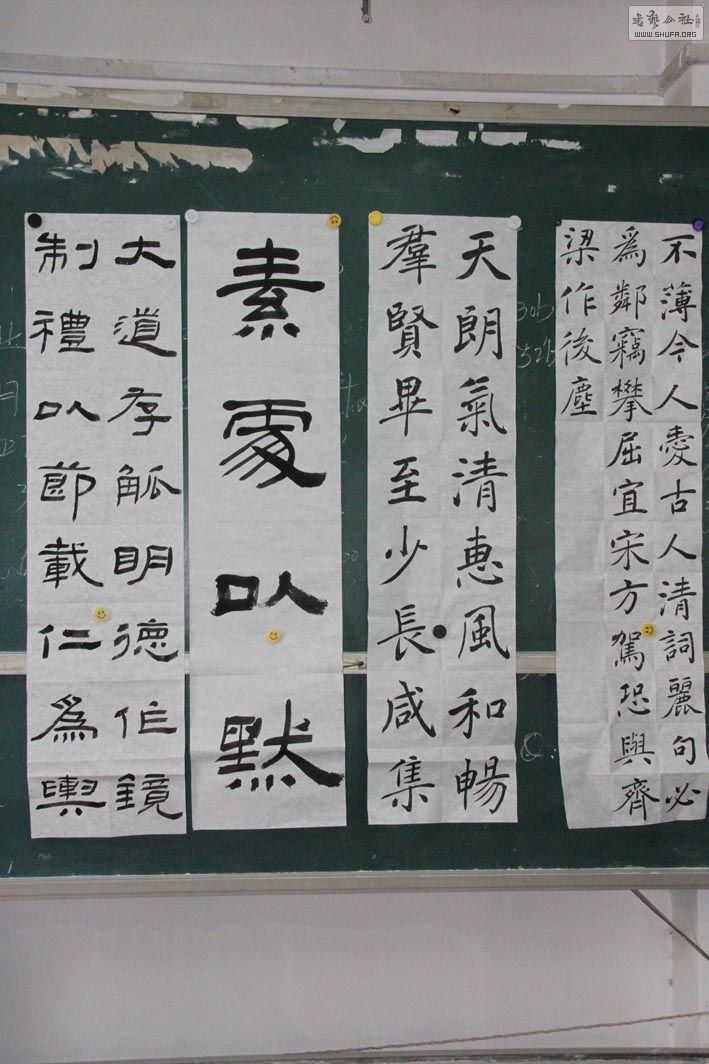 書藝公社
WWW.SHUFA.ORG
不薄今人愛古人清詞麗句必
爲鄰竊攀屈宜宋方駕恐與齊
梁作後塵
天朗氣清惠風和暢
羣賢畢至少長咸集
素處以默
大道存觚明德作鏡
制禮以節載仁爲輿